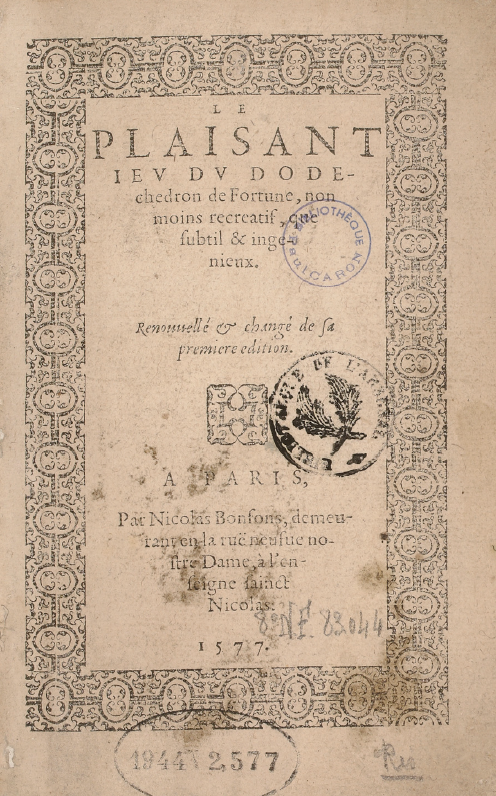 LE
PLAISANT
IEV DV DODE-
chedron de Fortune, non
moins recreatif, que
subtil & inge-
nieux.
BIBLIOTHÈQUE
CARON
Renouuellé & changé de sa
premiere edition.
DE L'A
A PARIS,
Par Nicolas Bonfons, demeu-
rant en la ruë neufue no-
stre Dame, à l'en-
seigne sainct
Nicolas.
8° NF. 82044
1577.
1944 2,577